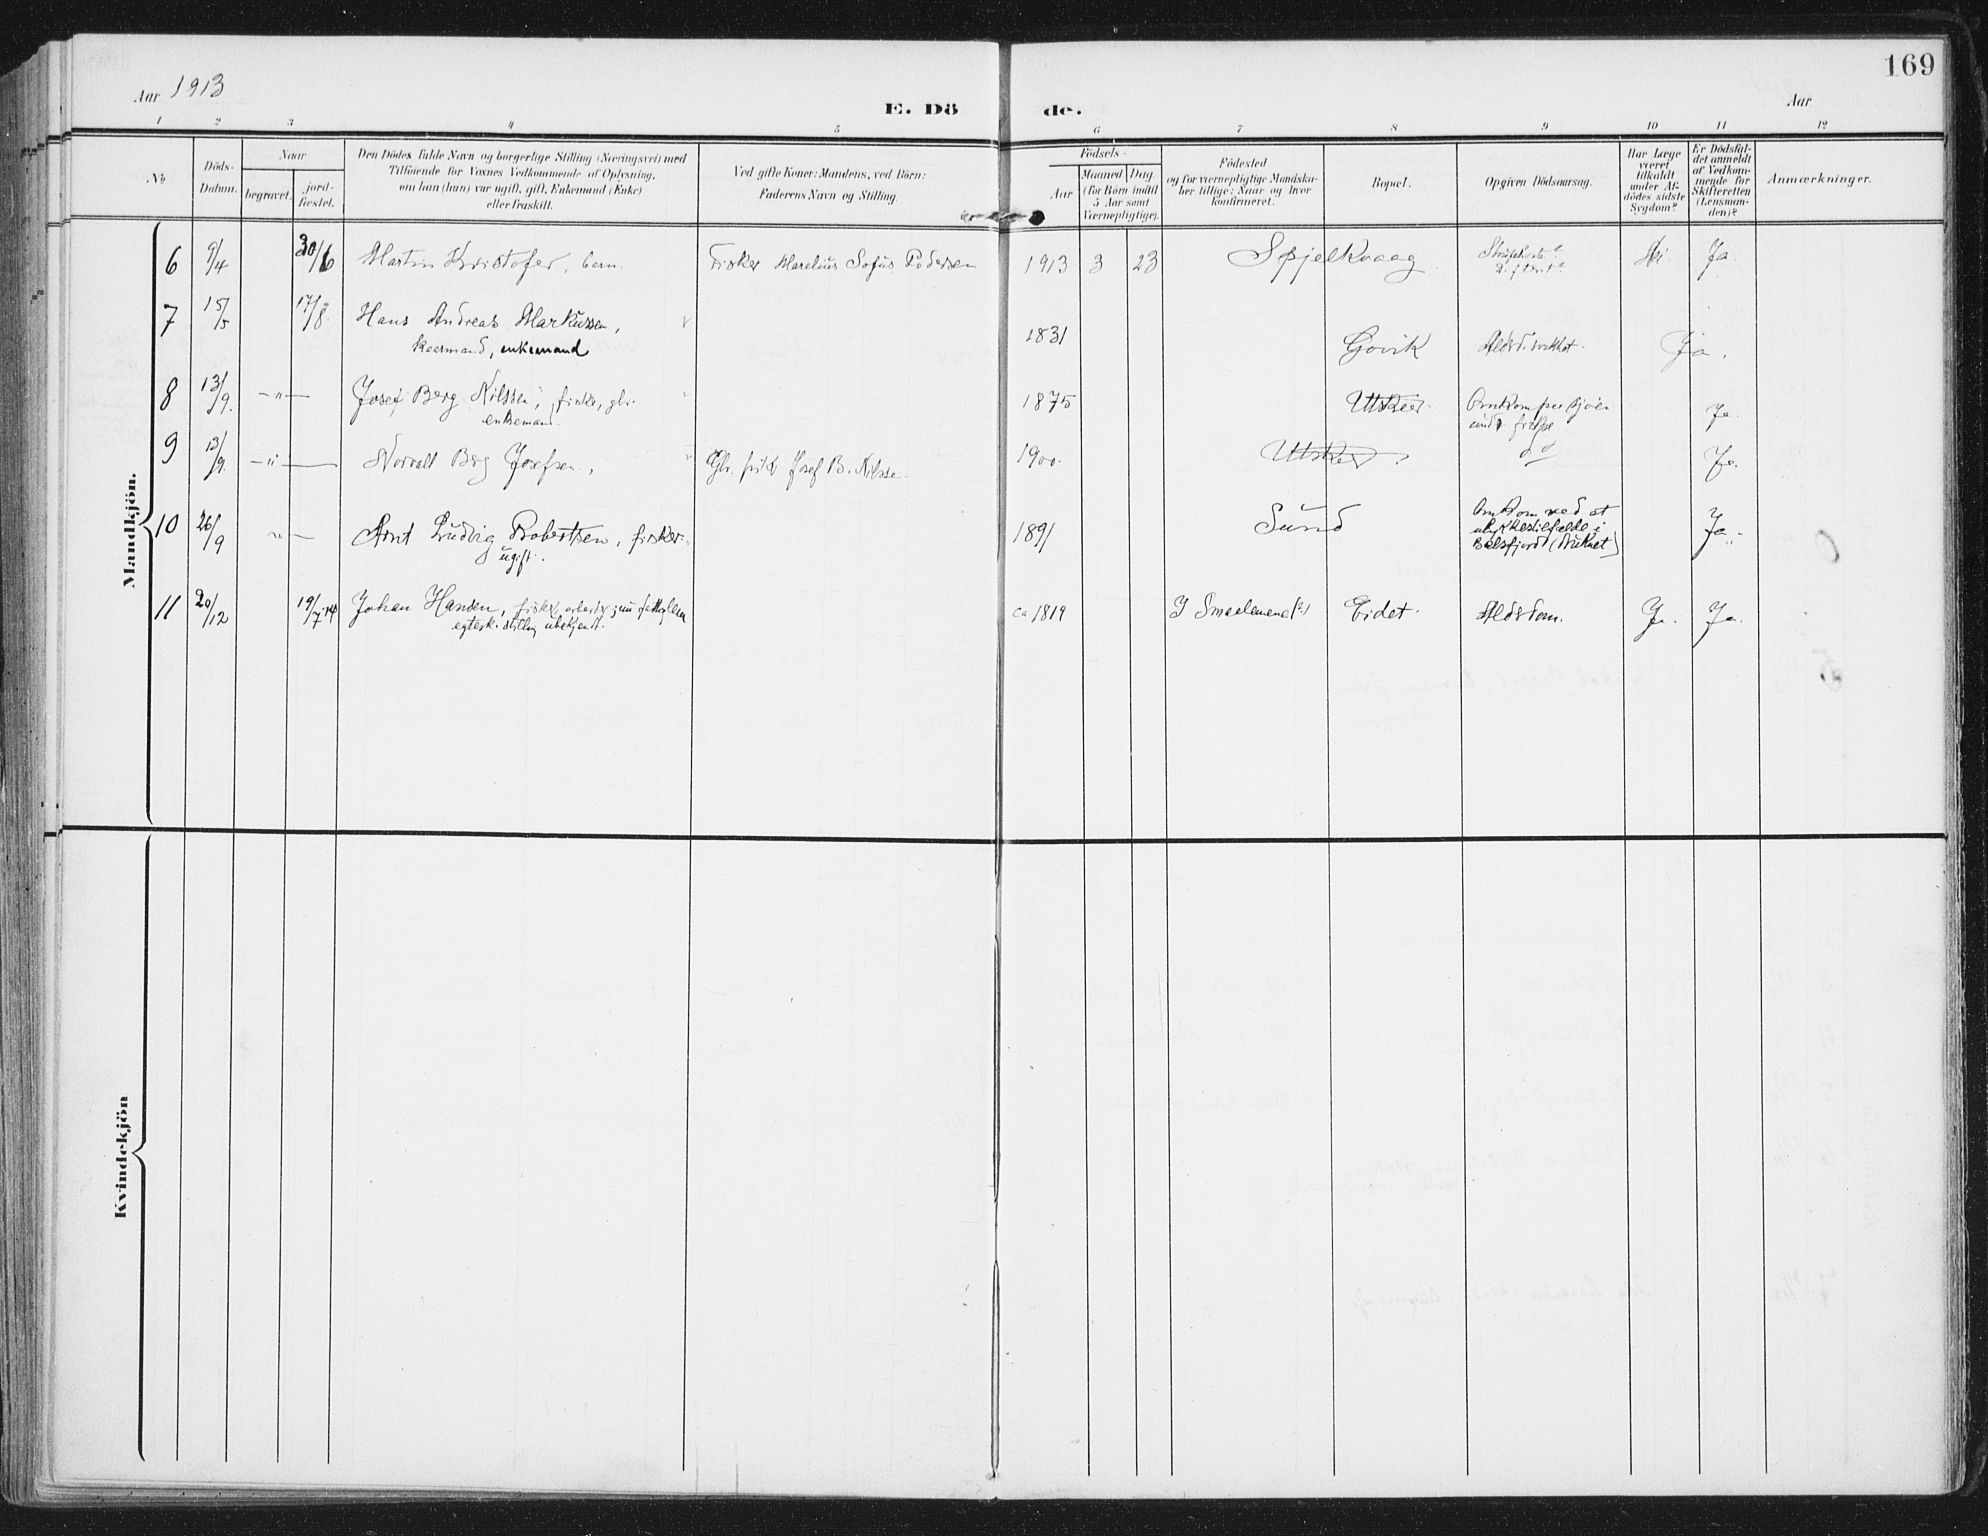 169
Aar 1913
E. Dö de.
Aar
1 2 3 4 5 6 7 8 9 10 11 12
No.
Döds-Datum.
Naar
begravet.
jord-fæstet.
Den Dödes fulde Navn og borgerlige Stilling (Næringsvei) med
Tilföiende for Voxnes Vedkommende af Oplysning,
om han (hun) var ugift, gift, Enkemand (Enke)
eller fraskilt.
Ved gifte Koner: Mandens, ved Börn:
Faderens Navn og Stilling.
Födsels-
Aar
Maaned Dag
(for Börn indtil
5 Aar samt
Værnepligtige).
Födested
og for værnepligtige Mandska-
ber tillige: Naar og hvor
konfirmeret.
Bopæl.
Opgiven Dödsaarsag.
Har Læge
været
tilkaldt
under Af-
dödes sidste
Sygdom?
Er Dödsfal-
det anmeldt
af Vedkom-
mende for
Skifteretten
(Lensman-
den)?
Anmærkninger.
Mandkjön.
6 9/4 30/6 Martin Kristofer, barn. Fisker Marelius Sofus Pedersen 1913 3 23 Spjelkvaag Nei Ja.
7 15/5 17/8 Hans Andreas Markussen, 1831 Govik Ja.
kaarmand, enkemand
8 13/9. -"- Josef Berg Nilssen, fisker, gbr. 1875 Utskeer Omkom paa sjøen Ja.
enkemand. under fiske
9 13/9. -"- Norvald Berg Josefsen, Gbr. fisk Josef B. Nilssen 1900. Utskeer do Ja.
10 26/9 -"- Arnt Ludvig Robertsen, fisker. 1891 Sund Omkom ved et Ja.
ugift. ulykkestilfælde i
Balsfjord (druknet)
11 20/12 19/7 14 Johan Hansen, fisker, arbeider, nu fattiglem ca 1819 I Smaalenene (?) Eidet. Alderdom. Ja. Ja.
egtesk. stilling ubekjendt.
Kvindekjön